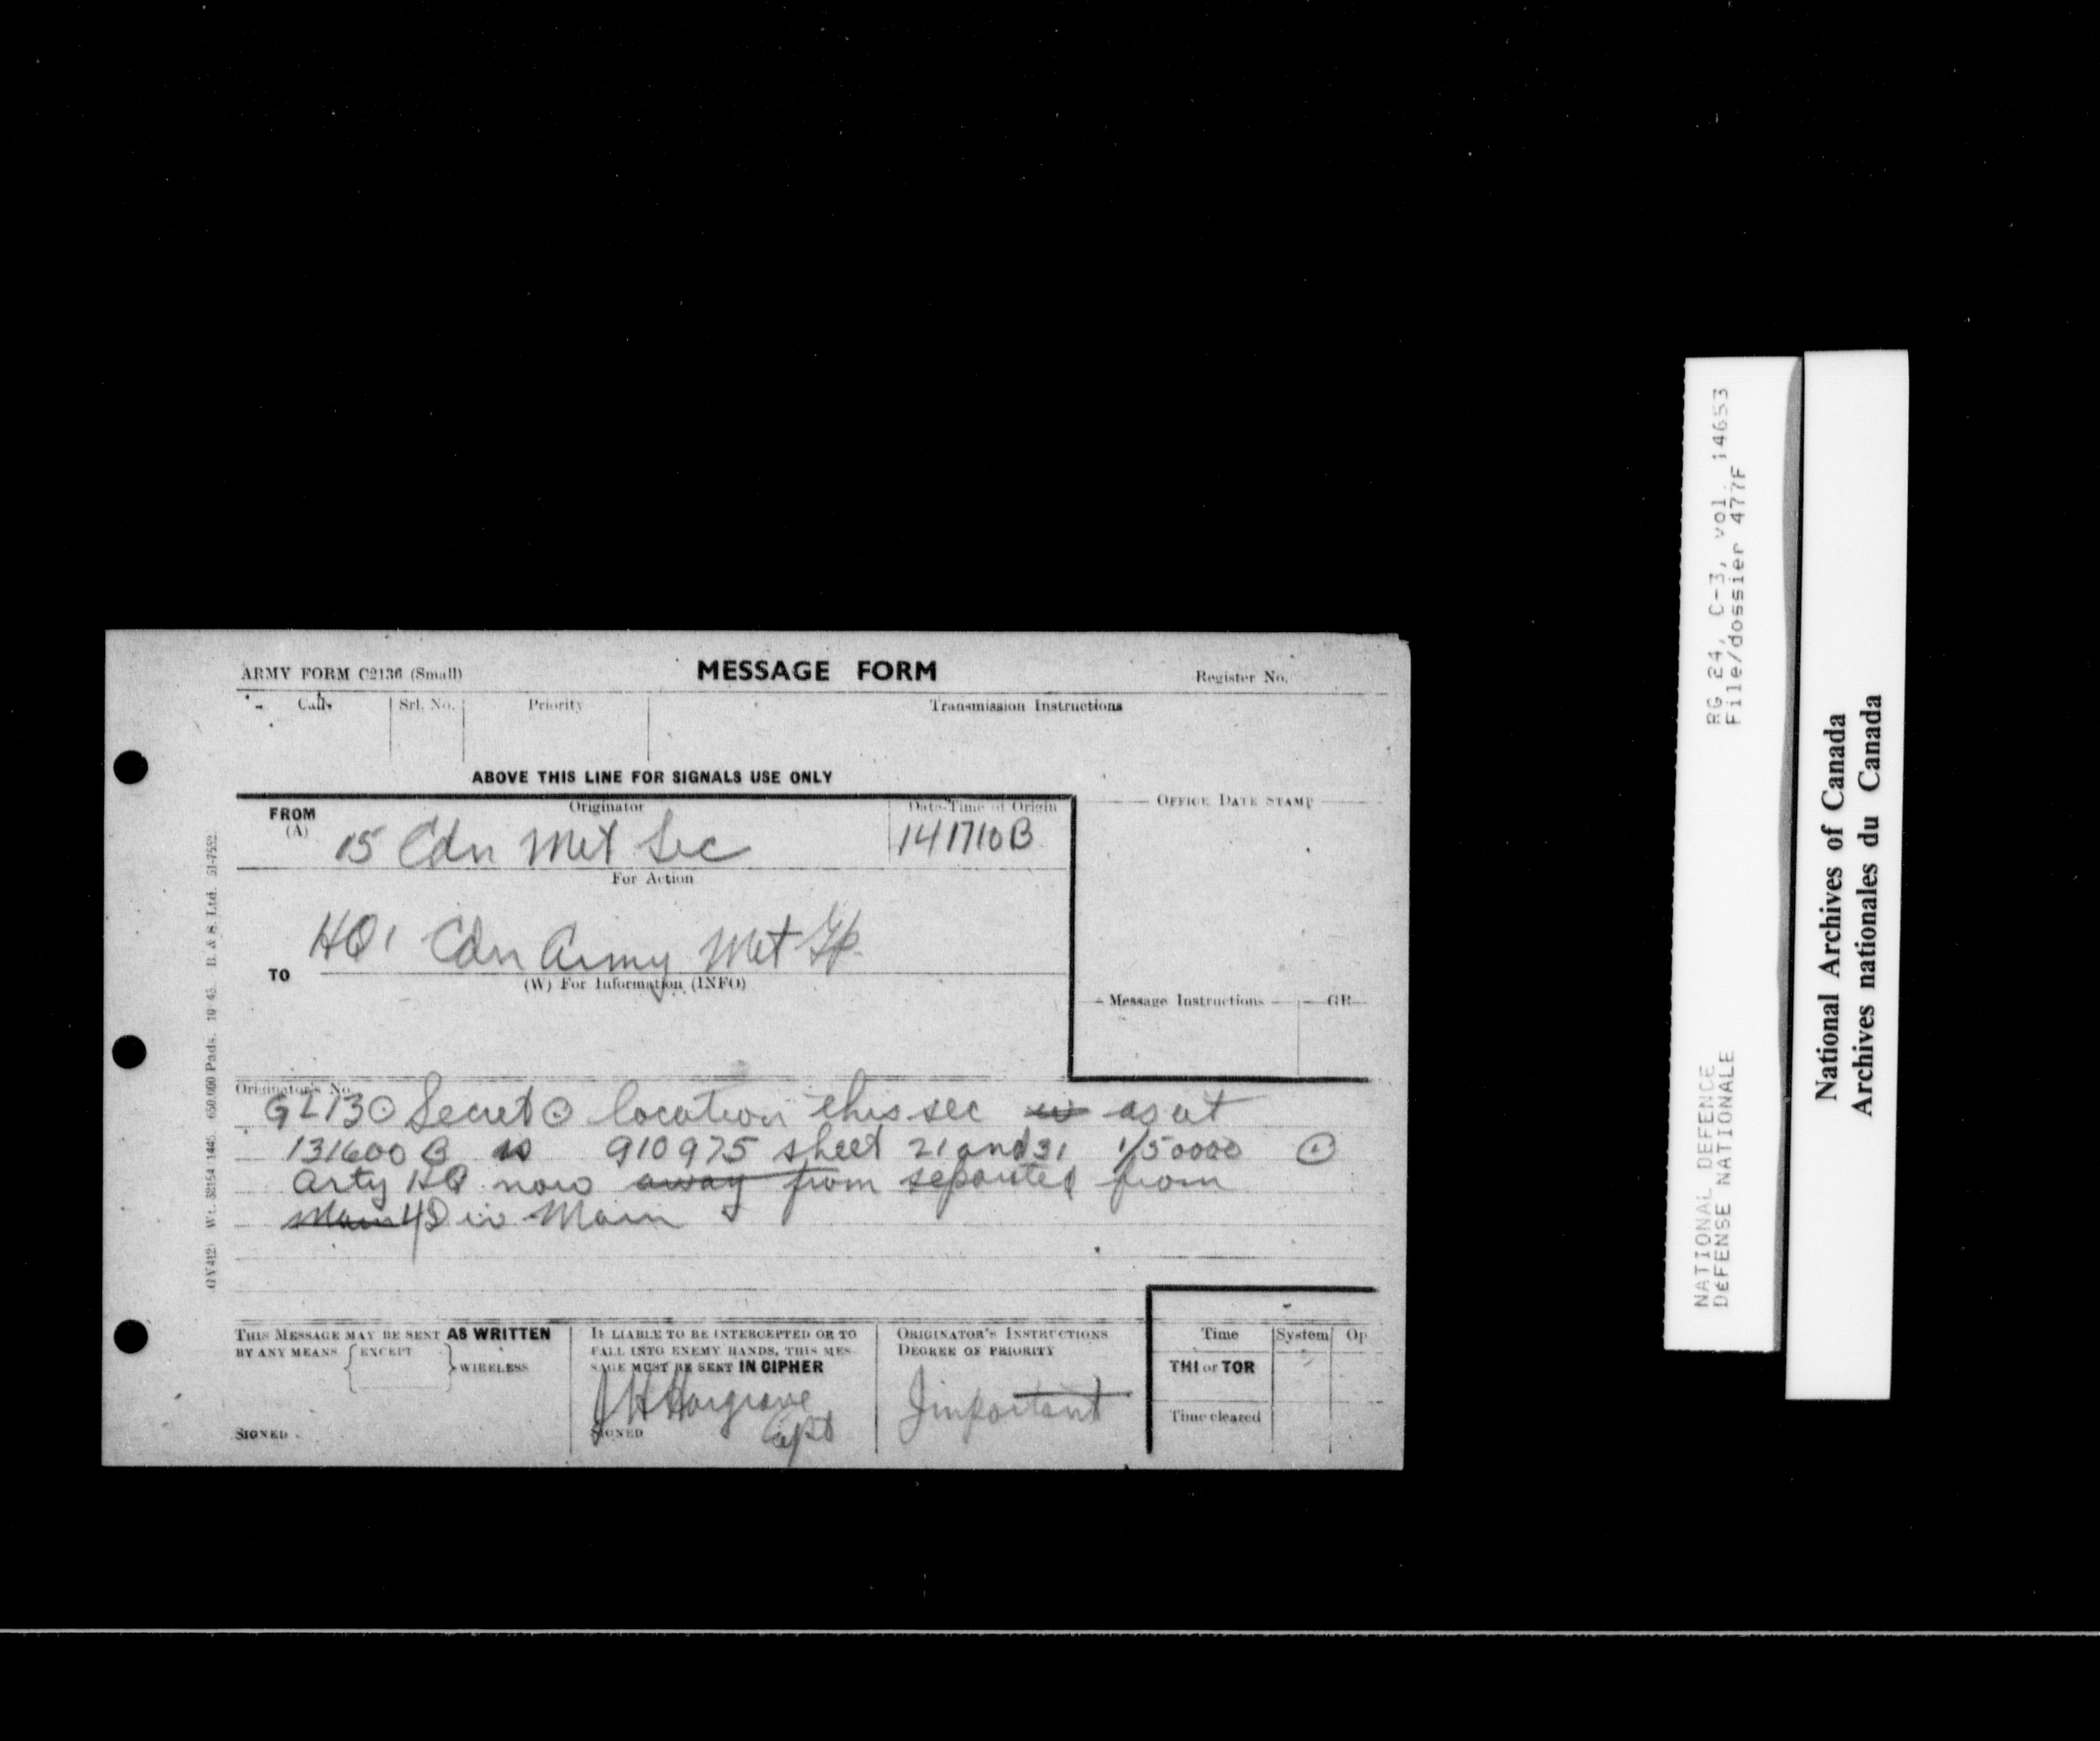 ARMY FORM C2136 (Small) MESSAGE FORM Register No.
Call Srl. No. Priority Transmission Instructions
ABOVE THIS LINE FOR SIGNALS USE ONLY
FROM (A) Originator Date-Time of Origin OFFICE DATE STAMP
15 Cdn Met Sec 141710B
For Action
HQ 1 Cdn Army Met Gp
TO
(W) For Information (INFO)
Message Instructions GR
Originator's No.
GL13 ⊙ Secret ⊙ location this sec is as at
131600 B is 910975 sheet 21 and 31 1/50000 ⊙
Arty HQ now away from separated from
Main 4 Div Main
THIS MESSAGE MAY BE SENT AS WRITTEN
BY ANY MEANS { EXCEPT } WIRELESS
SIGNED
IF LIABLE TO BE INTERCEPTED OR TO
FALL INTO ENEMY HANDS, THIS MES-
SAGE MUST BE SENT IN CIPHER
J H Hargrave
SIGNED Capt
ORIGINATOR'S INSTRUCTIONS
DEGREE OF PRIORITY
Important
Time System Op
THI or TOR
Time cleared
B. & S. Ltd. 51-7552
RG 24, C-3, vol. 14653
File/dossier 477F
NATIONAL DEFENCE
DéFENSE NATIONALE
National Archives of Canada
Archives nationales du Canada